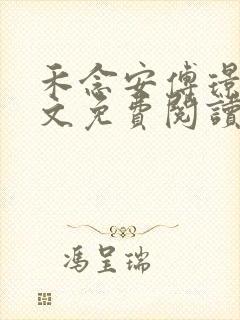 禾念安傅璟
文免費閱讀
馮呈瑞